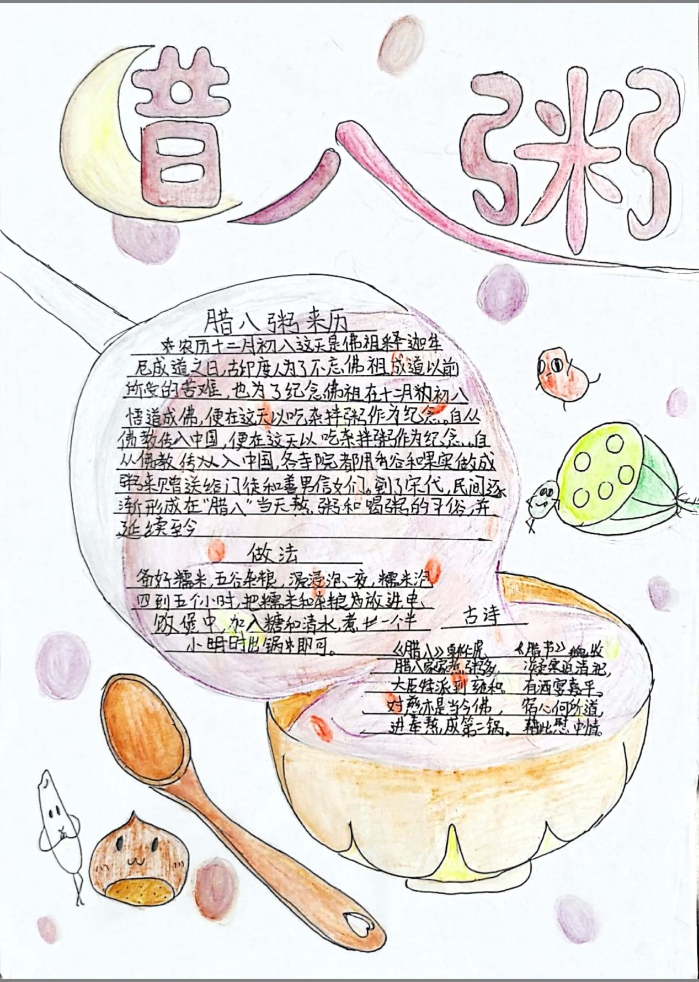 腊八粥
腊八粥来历
农历十二月初八这天是佛祖释迦牟
尼成道之日,古印度人为了不忘佛祖成道以前
所受的苦难,也为了纪念佛祖在十二月初八
悟道成佛,便在这天以吃杂拌粥作为纪念。自从
佛教传入中国,便在这天以吃杂拌粥作为纪念。自
从佛教传入中国,各寺院都用香谷和果实做成
粥来赠送给门徒和善男信女们,到了宋代,民间逐
渐形成在“腊八”当天熬粥和喝粥的习俗,并
延续至今
做法
备好糯米,五谷杂粮,浸泡一夜,糯米泡
四到五个小时,把糯米和杂粮放进电
饭煲中,加入糖和清水,煮一个半
小时出锅即可。
古诗
《腊八》 《腊书》
腊八家家煮粥多 凝寒迫清祀,
大臣特派到雍和 有酒宴嘉平。
对慈亦是当今佛, 宿心何所道,
进奉熬成第二锅。 藉此慰中情。